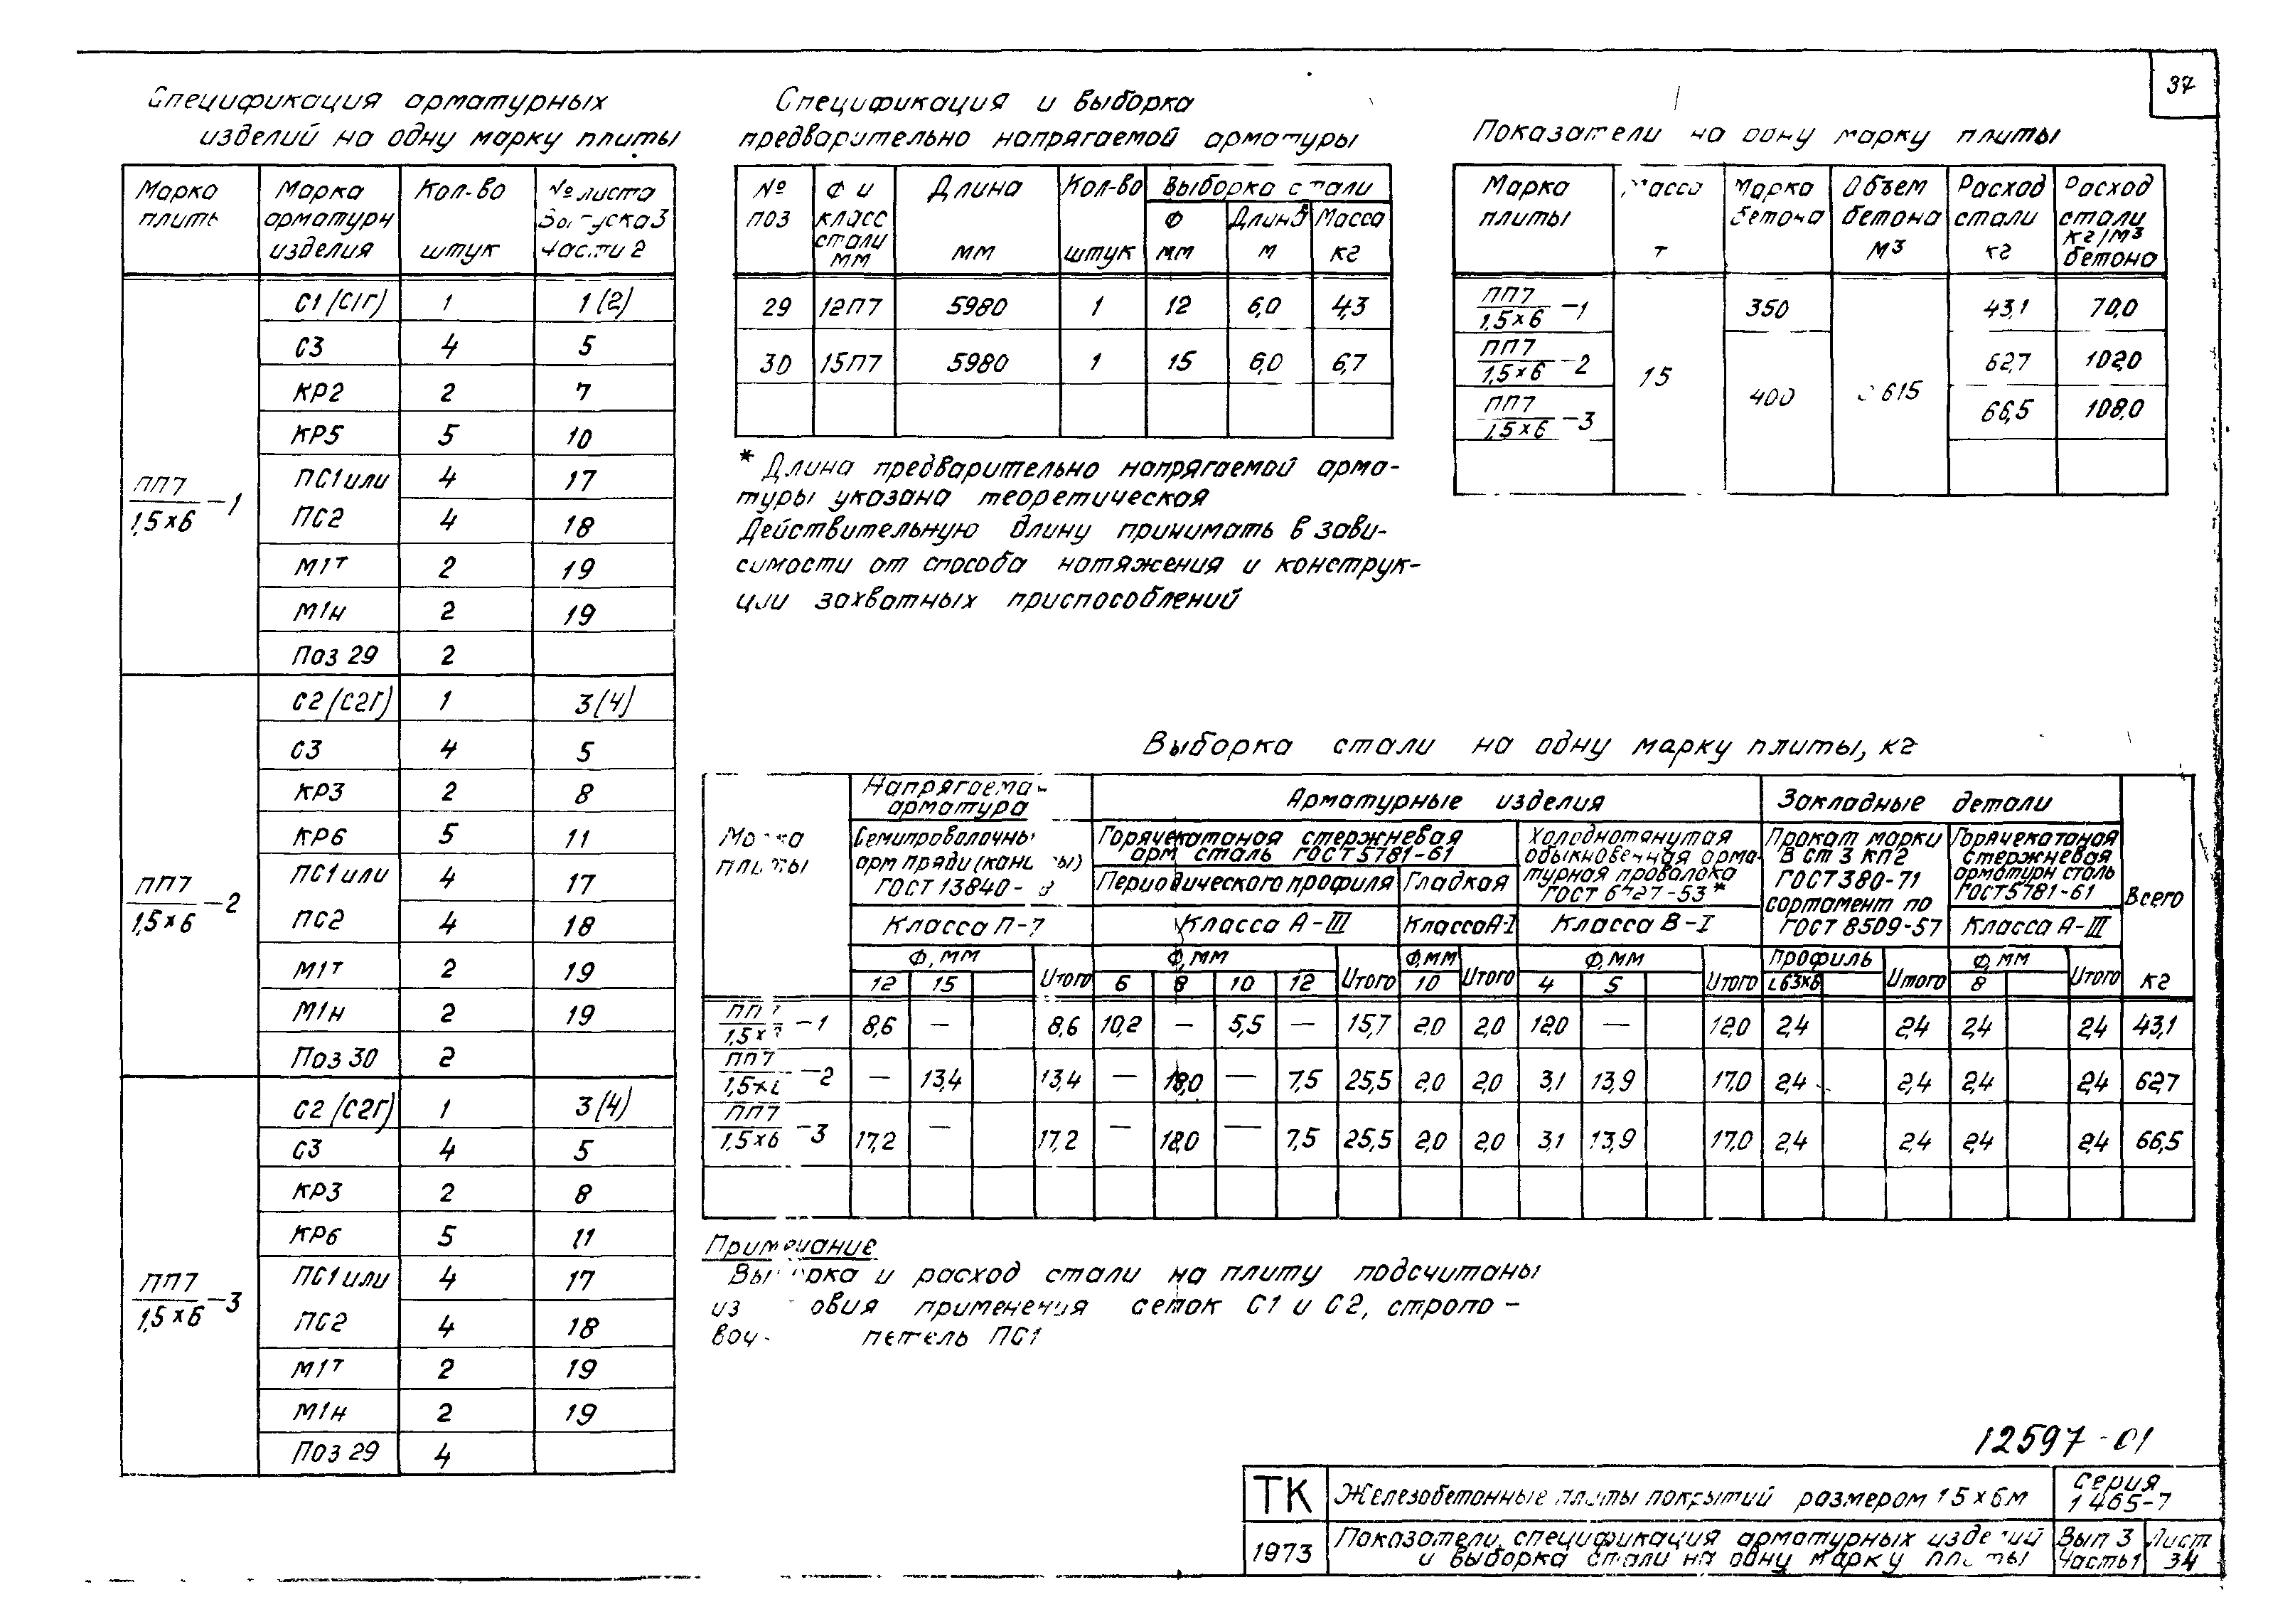 37
Спецификация арматурных
изделий на одну марку плиты
Марка плиты | Марка арматурн изделия | Кол-во штук | № листа Выпуска 3 части 2
ПП7/1,5×6 -1
С1 (С1Г) 1 1 (2)
С3 4 5
КР2 2 7
КР5 5 10
ПС1 или 4 17
ПС2 4 18
М1т 2 19
М1н 2 19
Поз 29 2
ПП7/1,5×6 -2
С2 (С2Г) 1 3 (4)
С3 4 5
КР3 2 8
КР6 5 11
ПС1 или 4 17
ПС2 4 18
М1т 2 19
М1н 2 19
Поз 30 2
ПП7/1,5×6 -3
С2 (С2Г) 1 3 (4)
С3 4 5
КР3 2 8
КР6 5 11
ПС1 или 4 17
ПС2 4 18
М1т 2 19
М1н 2 19
Поз 29 4
Спецификация и выборка
предварительно напрягаемой арматуры
№ поз | Ф и класс стали мм | Длина мм | Кол-во штук | Выборка стали
Ф мм | Длина м | Масса кг
29 12П7 5980 1 12 6,0 4,3
30 15П7 5980 1 15 6,0 6,7
* Длина предварительно напрягаемой арма-
туры указана теоретическая
Действительную длину принимать в зави-
симости от способа натяжения и конструк-
ции захватных приспособлений
Показатели на одну марку плиты
Марка плиты | Масса т | Марка бетона | Объем бетона м3 | Расход стали кг | Расход стали кг/м3 бетона
ПП7/1,5×6 -1 350 43,1 70,0
ПП7/1,5×6 -2 62,7 102,0
15 400 615
ПП7/1,5×6 -3 66,5 108,0
Выборка стали на одну марку плиты, кг
Марка плиты | Напрягаемая арматура | Арматурные изделия | Закладные детали | Всего кг
Семипроволочны арм пряди (канаты) ГОСТ 13840-
Горячекатаная стержневая арм сталь ГОСТ 5781-61
Холоднотянутая обыкновенная арма- турная проволока ГОСТ 6727-53*
Прокат марки В ст 3 кп2 ГОСТ 380-71 сортамент по ГОСТ 8509-57
Горячекатаная стержневая арматурн сталь ГОСТ 5781-61
Периодического профиля | Гладкая
Класса П-7 | Класса А-III | Класса А-I | Класса В-I | Класса А-III
Ф, мм | Итого | Ф, мм | Итого | Ф, мм | Итого | Ф, мм | Итого | Профиль | Итого | Ф, мм | Итого
12 15 6 8 10 12 10 4 5 L63×6 8
ПП7/1,5× -1 8,6 — 8,6 10,2 — 5,5 — 15,7 2,0 2,0 12,0 — 12,0 2,4 2,4 2,4 2,4 43,1
ПП7/1,5× -2 — 13,4 13,4 — 18,0 — 7,5 25,5 2,0 2,0 3,1 13,9 17,0 2,4 2,4 2,4 2,4 62,7
ПП7/1,5×6 -3 17,2 — 17,2 — 18,0 — 7,5 25,5 2,0 2,0 3,1 13,9 17,0 2,4 2,4 2,4 2,4 66,5
Примечание
Выборка и расход стали на плиту подсчитаны
из овия применения сеток С1 и С2, стропо-
воч- петель ПС1
12597-01
ТК Железобетонные плиты покрытий размером 1 5 × 6 м Серия 1 465-7
1973 Показатели, спецификация арматурных изделий Вып 3 Лист
и выборка стали на одну марку плиты Часть 1 34